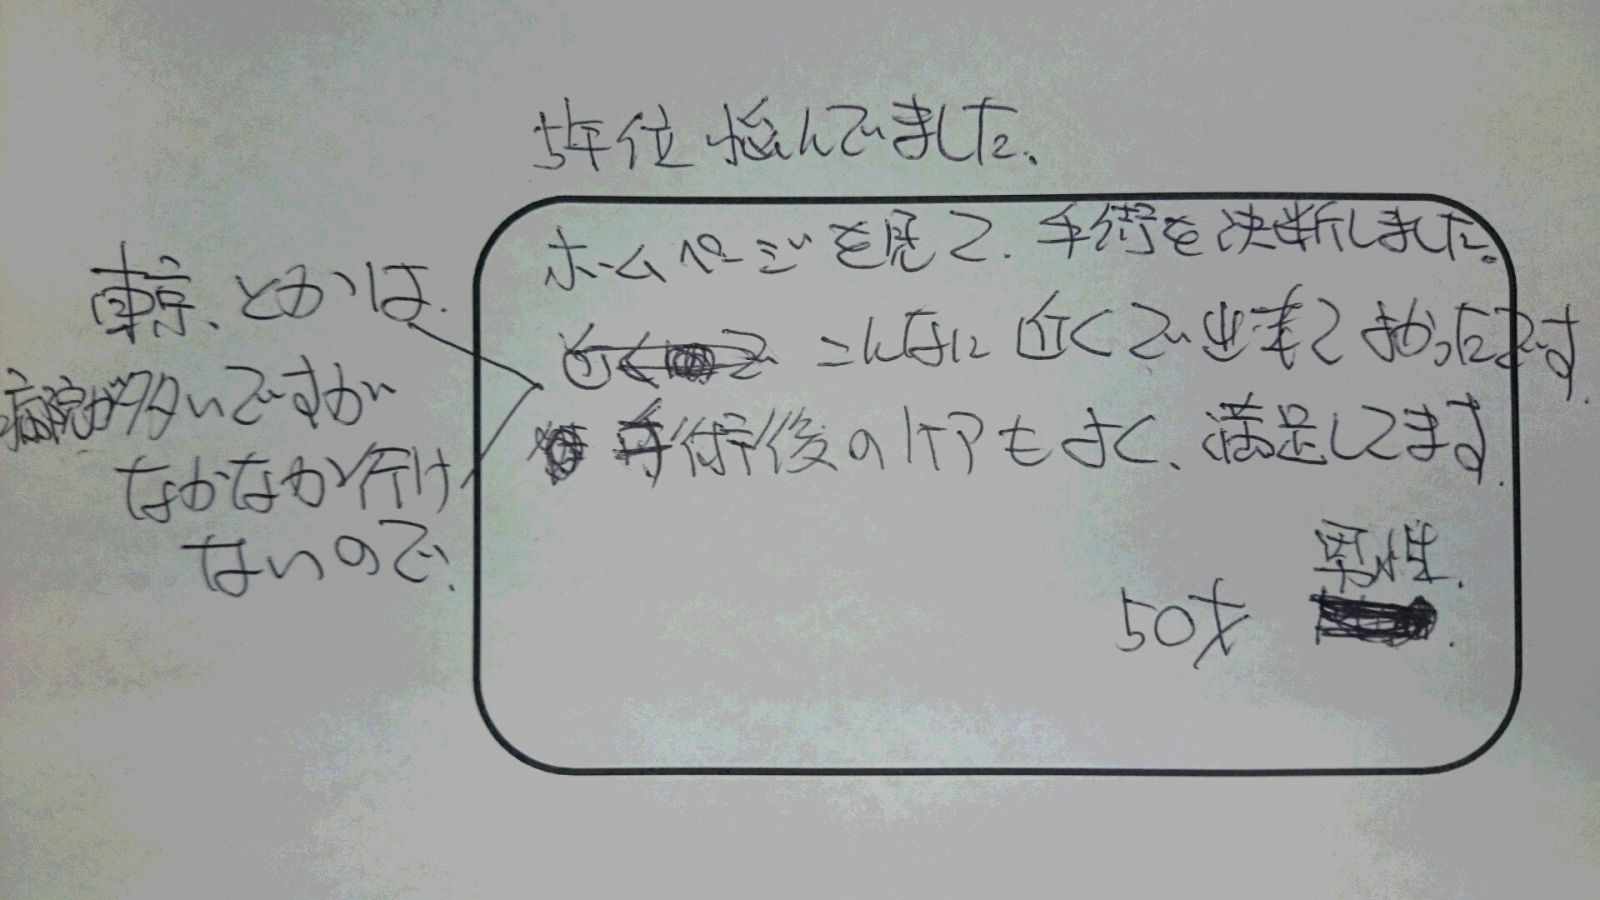 5年位悩んでました.
ホームページを見て.手術を決断しました。
東京、とかは.
病院が多いですが
なかなか行け
ないので.
こんなに近くで出来てよかったです.
手術後のケアもよく、満足してます.
男性.
50才